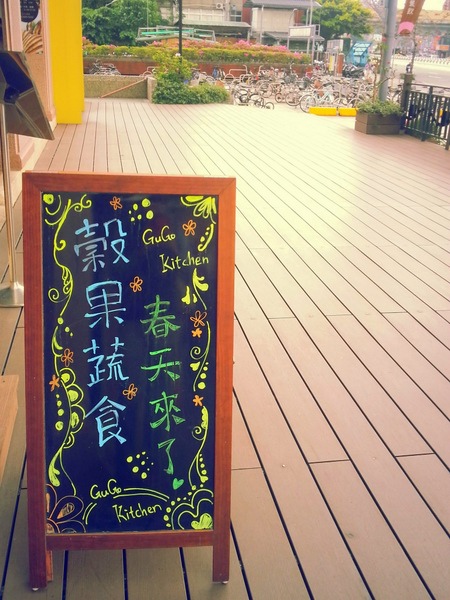 GuGo
Kitchen
春天來了
穀果蔬食
GuGo
Kitchen